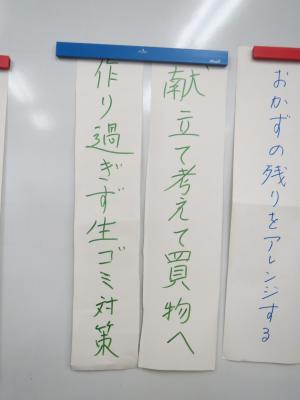 おかずの残りをアレンジする
献立て考えて買物へ
作り過ぎず生ゴミ対策